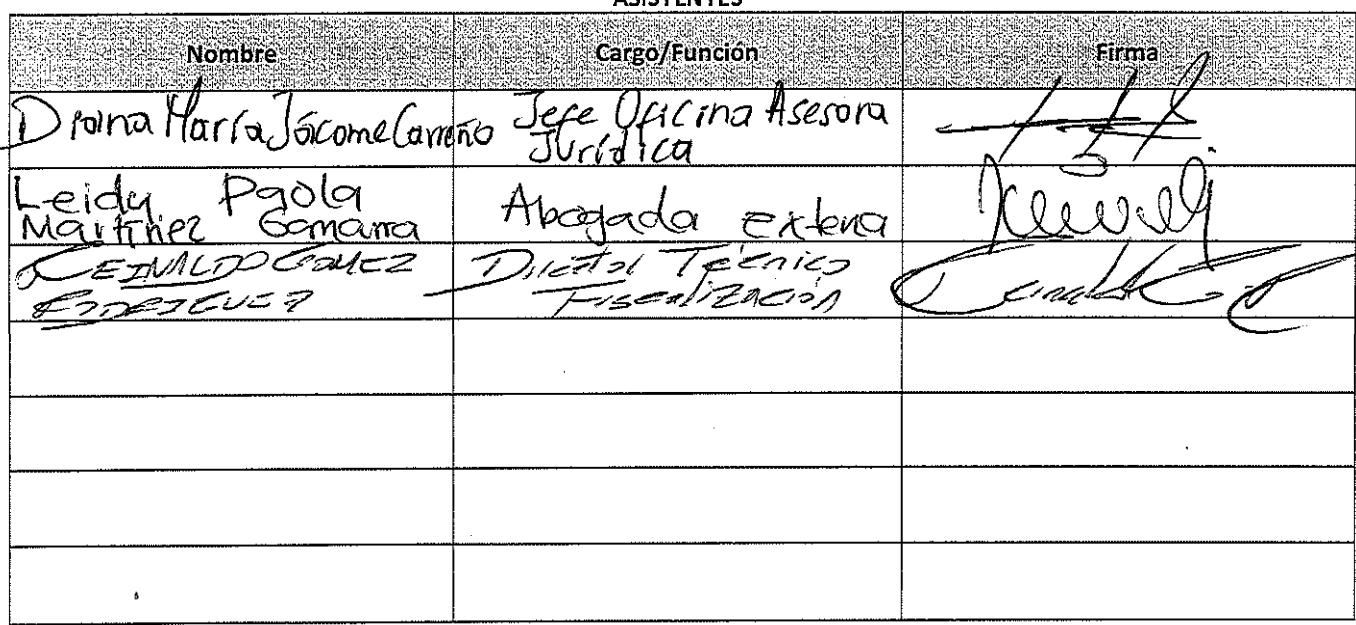 ASISTENTES
Nombre Cargo/Función Firma
Diana María Jácome Carreño Jefe Oficina Asesora
Jurídica
Leidy Paola
Martínez Gamarra Abogada externa
REINALDO GOMEZ Director Técnico
RODRIGUEZ Fiscalización